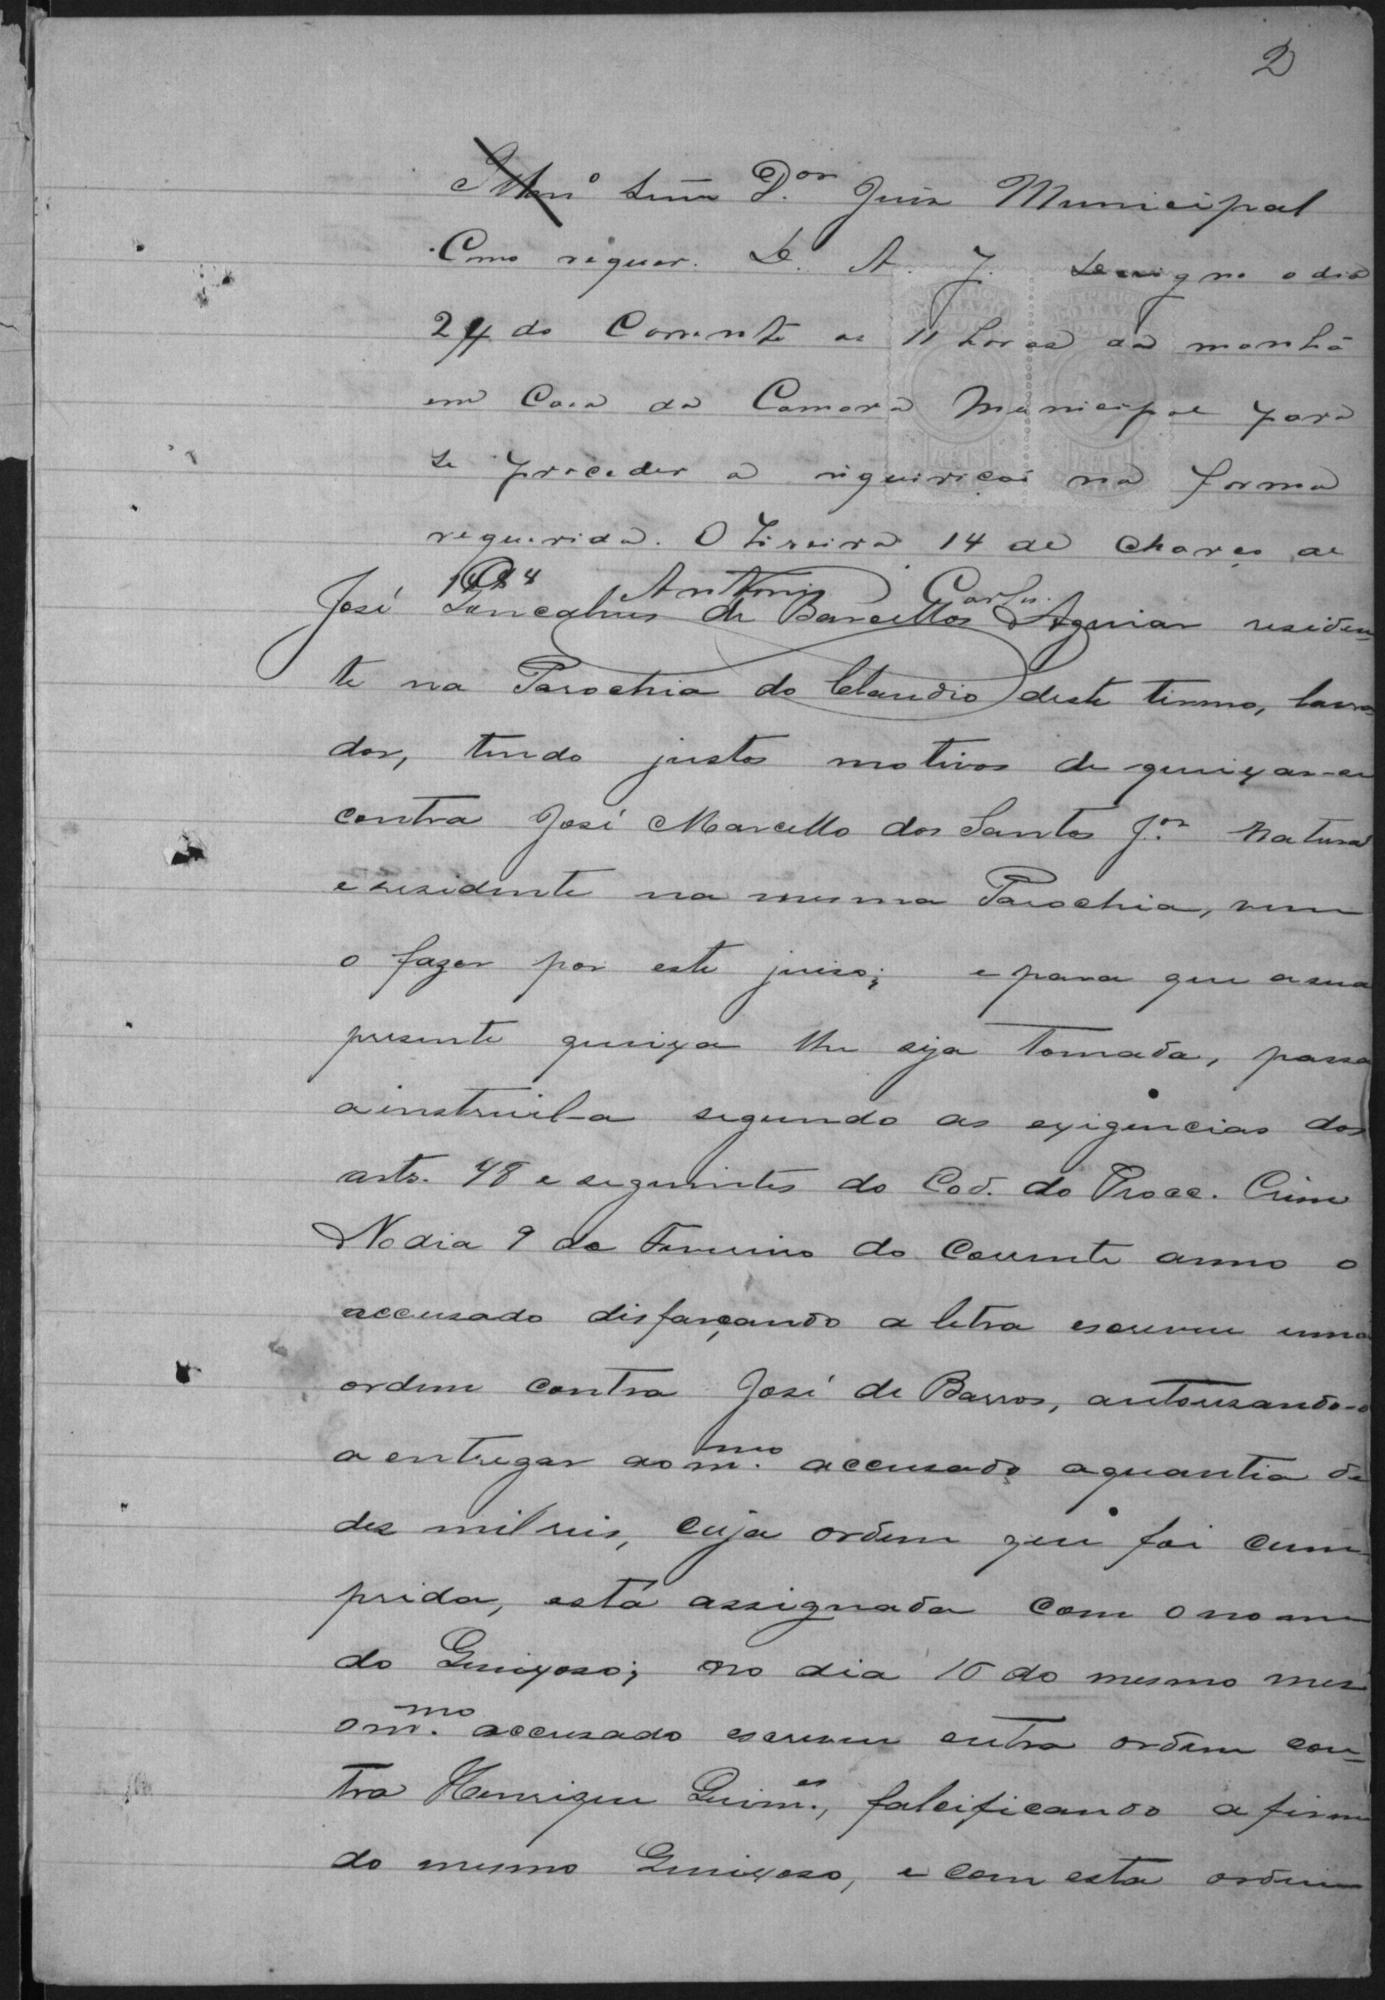 2
Illmº Senr D.or Juiz Municipal
Como requer. D. A. J. Designo o dia
24 do Corrente as 11 horas da manhã
em Casa da Camara Municipal para
se proceder a inquirição na forma
requerida. Oliveira 14 de Março de
1884 Antonio Carlos
José Goncalves de Barcellos Aguiar residen-
te na Parochia do Claudio deste termo, lavra
dor, tendo justos motivos de queixar-se
contra José Marcello dos Santos J.or natural
e residente na mesma Parochia, vem
o fazer por este juiso; e para que a sua
presente queixa lhe seja tomada, passa
a instruil-a segundo as exigencias dos
arts. 78 e seguintes do Cod. do Proce. Crime
No dia 9 de Fevereiro do Corrente anno o
accusado disfarçando a letra escreveu uma
ordem contra José de Barros, autorisando-o
a entregar ao m.mo accusado a quantia de
dez mil reis, cuja ordem que foi cum-
prida, está assignada com o nome
do Queixoso; no dia 15 do mesmo mes
o m.mo accusado escreveu outra ordem con-
tra Henrique Guim.es, falcificando a firma
do mesmo Queixoso, e com esta ordem